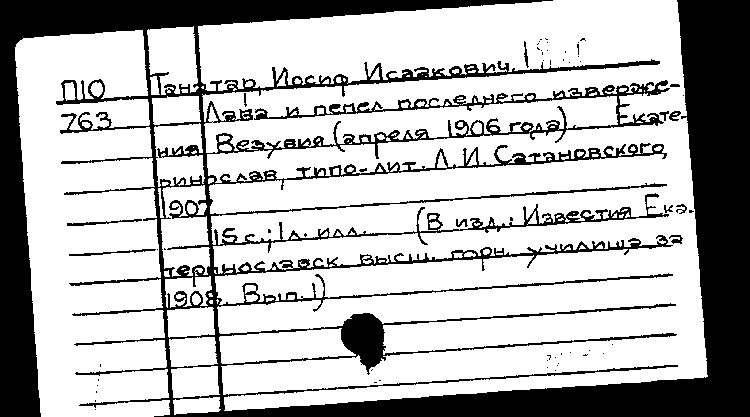 П10 Танатар, Иосиф Исаакович.
763 Лава и пепел последнего изверже-
ния Везувия (апреля 1906 года). Екате-
ринослав, типо-лит. Л.И. Сатановского,
1907
15 с.; 1 л. илл. (В изд.: Известия Ека-
теринославск. высш. горн. училища за
1908. Вып. 1)